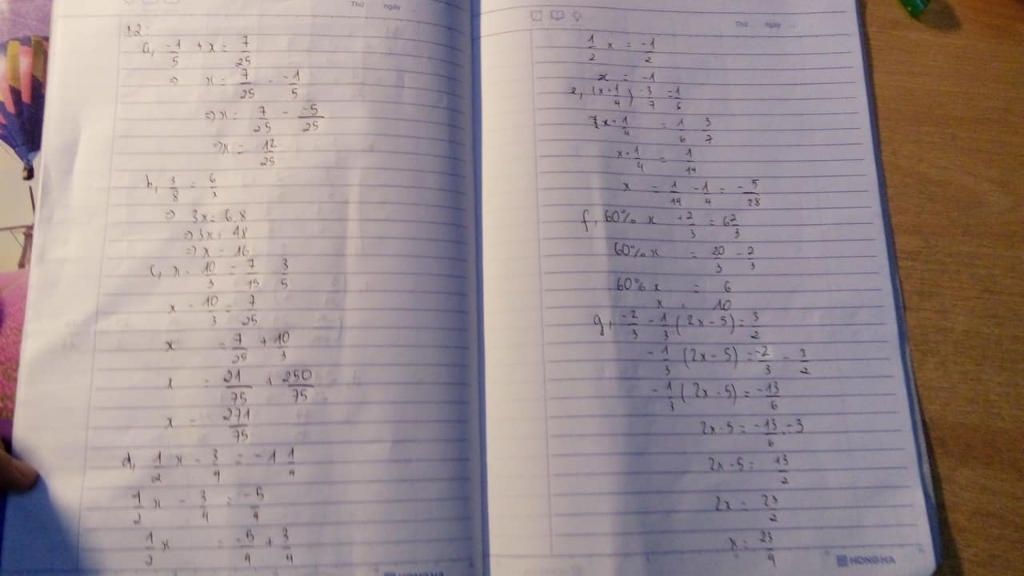 Thứ ngày
12.
a, -1/5 + x = 7/25
⇒ x = 7/25 - -1/5
⇒ x = 7/25 - -5/25
⇒ x = 12/25
b, 3/8 = 6/x
⇒ 3x = 6.8
⇒ 3x = 48
⇒ x = 16
c, x - 10/3 = 7/15 . 3/5
x - 10/3 = 7/25
x = 7/25 + 10/3
x = 21/75 + 250/75
x = 271/75
d, 1/2 x - 3/4 = -1 1/4
1/2 x - 3/4 = -5/4
1/2 x = -5/4 + 3/4
HONG HA
Thứ ngày
1/2 x = -1/2
x = -1
e, (x + 1/4) : -3/7 = 1/6
x + 1/4 = 1/6 . 3/7
x + 1/4 = 1/14
x = 1/14 - 1/4 = -5/28
f, 60% x + 2/3 = 6 2/3
60% x = 20/3 - 2/3
60% x = 6
x = 10
g, -2/3 - 1/3 (2x - 5) = 3/2
-1/3 (2x - 5) = -2/3 - 3/2
-1/3 (2x - 5) = -13/6
2x - 5 = -13/6 . -3
2x - 5 = 13/2
2x = 23/2
x = 23/4
HONG HA